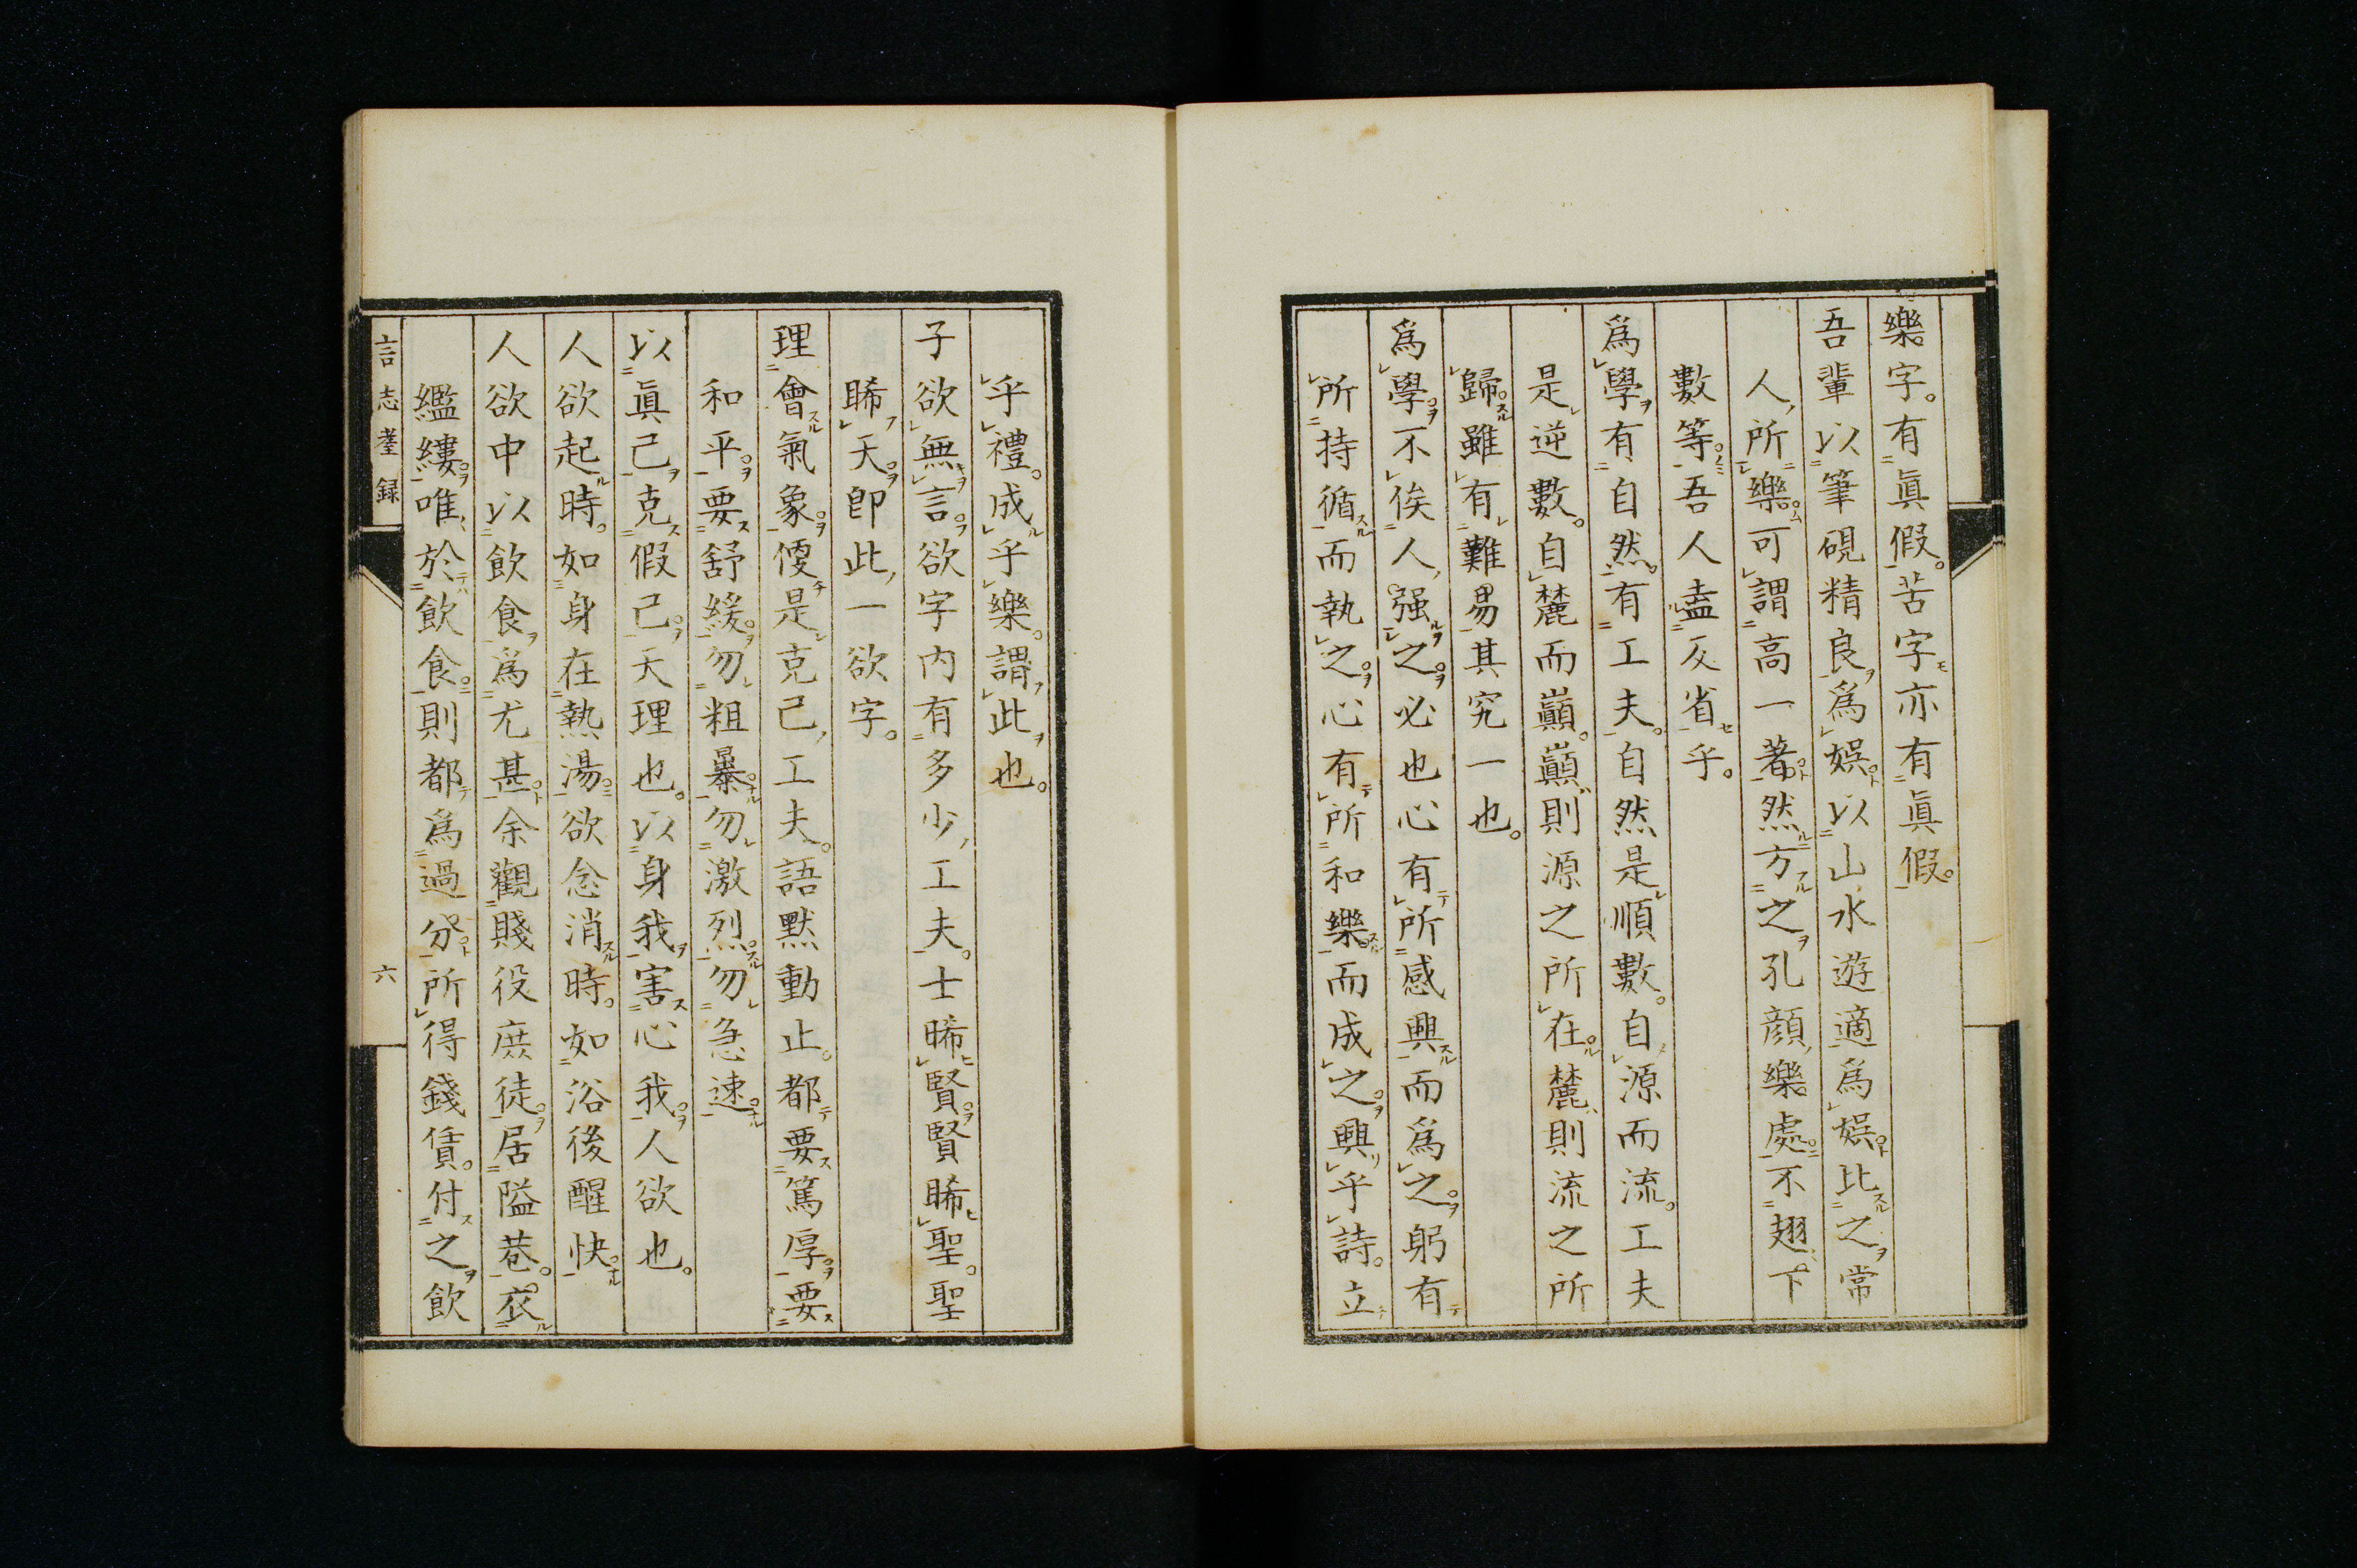 樂字。有眞假。苦字亦有眞假。
吾輩以筆硯精良爲娯。以山水遊適爲娯。比之常
人所樂。可謂高一著。然方之孔顔樂處。不翅下
數等。吾人盍反省乎。
爲學有自然。有工夫。自然是順數。自源而流。工夫
是逆數。自麓而巓。巓則源之所在。麓則流之所
歸。雖有難易其究一也。
爲學。不俟人强之。必也心有所感興而爲之。躬有
所持循而執之。心有所和樂而成之。興乎詩。立
乎禮。成乎樂。謂此也。
子欲無言。欲字内有多少工夫。士睎賢。賢睎聖。聖
睎天。卽此一欲字。
理會氣象。便是克己工夫。語默動止。都要篤厚。要
和平。要舒緩。勿粗暴。勿激烈。勿急速。
以眞己克假己。天理也。以身我害心我。人欲也。
人欲起時。如身在熱湯。欲念消時。如浴後醒快。
人欲中以飲食爲尤甚。余觀賤役庶徒。居隘巷。衣
繿縷。唯於飲食。則都爲過分。所得錢賃。付之飲
言志耋録
六